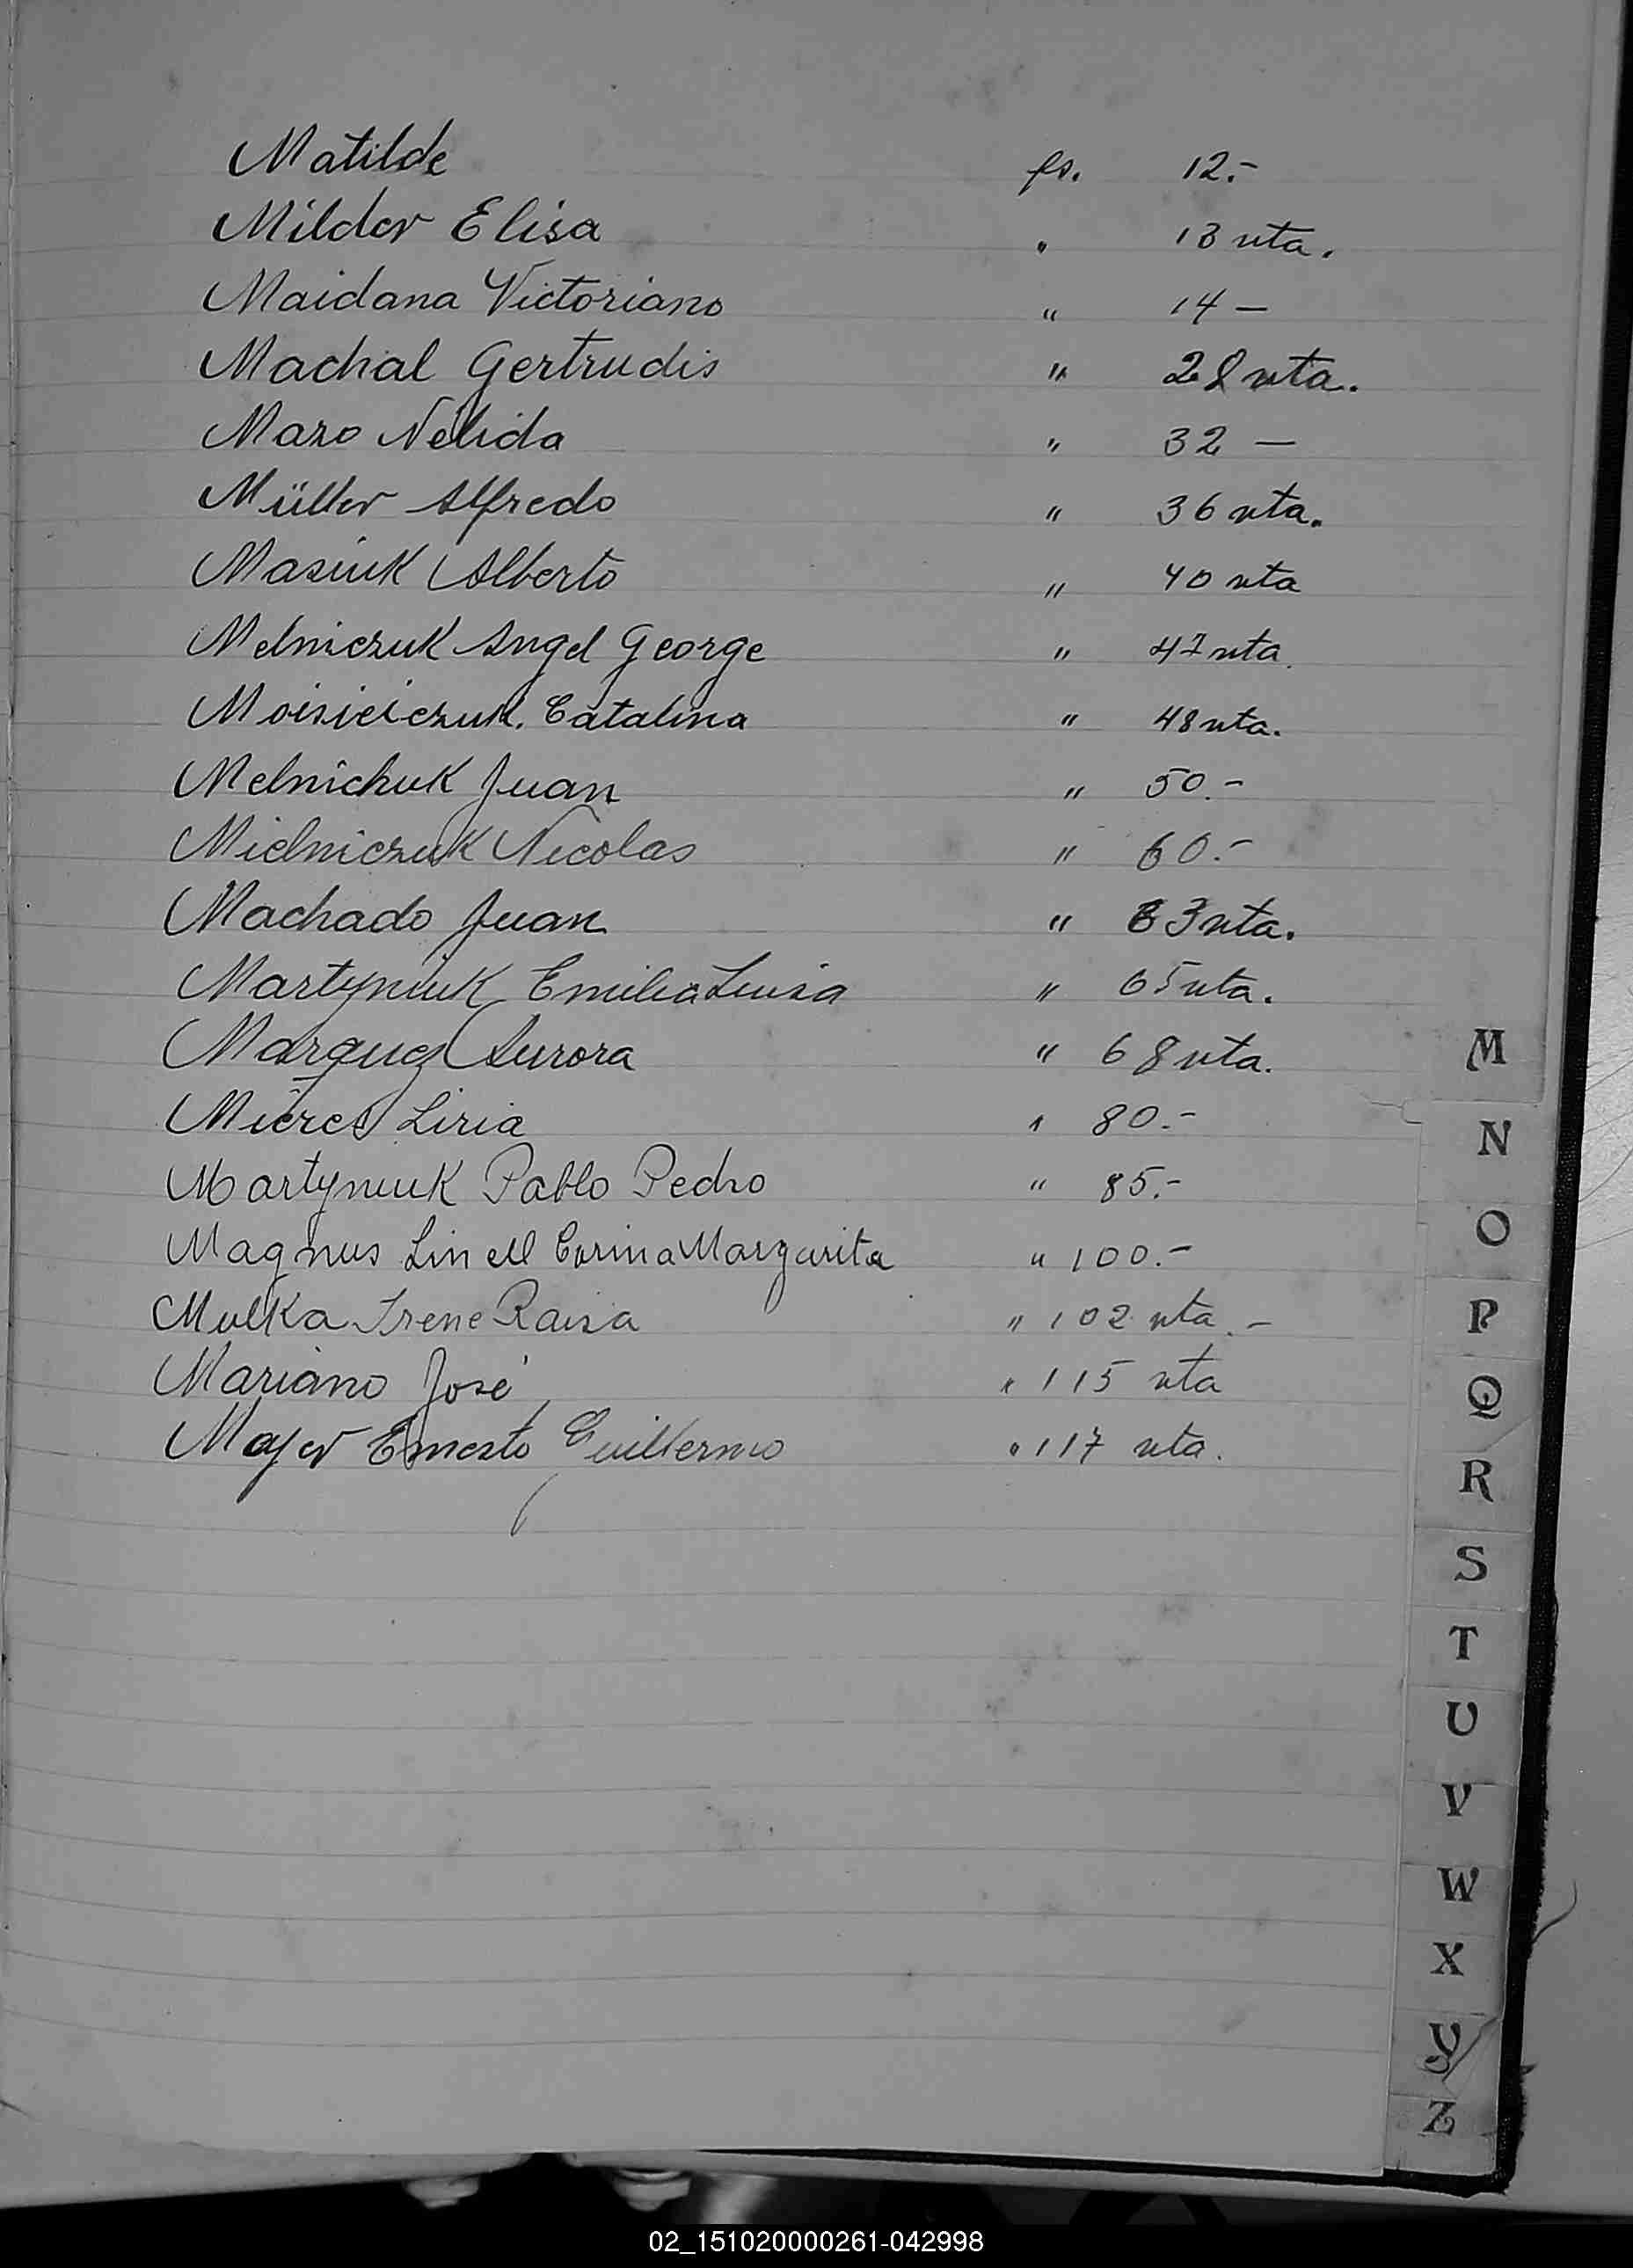 Matilde fs. 12.-
Milder Elisa " 13 vta.
Maidana Victoriano " 14 -
Machal Gertrudis " 28 vta.
Mazo Nélida " 32 -
Müller Alfredo " 36 vta.
Masiuk Alberto " 40 vta
Melniczuk Angel George " 47 vta.
Moisieiczuk. Catalina " 48 vta.
Melnichuk Juan " 50.-
Mielniczuk Nicolas " 60.-
Machado Juan " 63 vta.
Martyniuk Emilia Luisa " 65 vta.
Marquez Aurora " 68 vta.
Mieres Liria " 80.-
Martyniuk Pablo Pedro " 85.-
Magnus Linell Corina Margarita " 100.-
Mulka Irene Raisa " 102 vta.-
Mariano José " 115 vta
Mayer Ernesto Guillermo " 117 vta.
M
N
O
P
Q
R
S
T
U
V
W
X
Y
Z
02_151020000261-042998